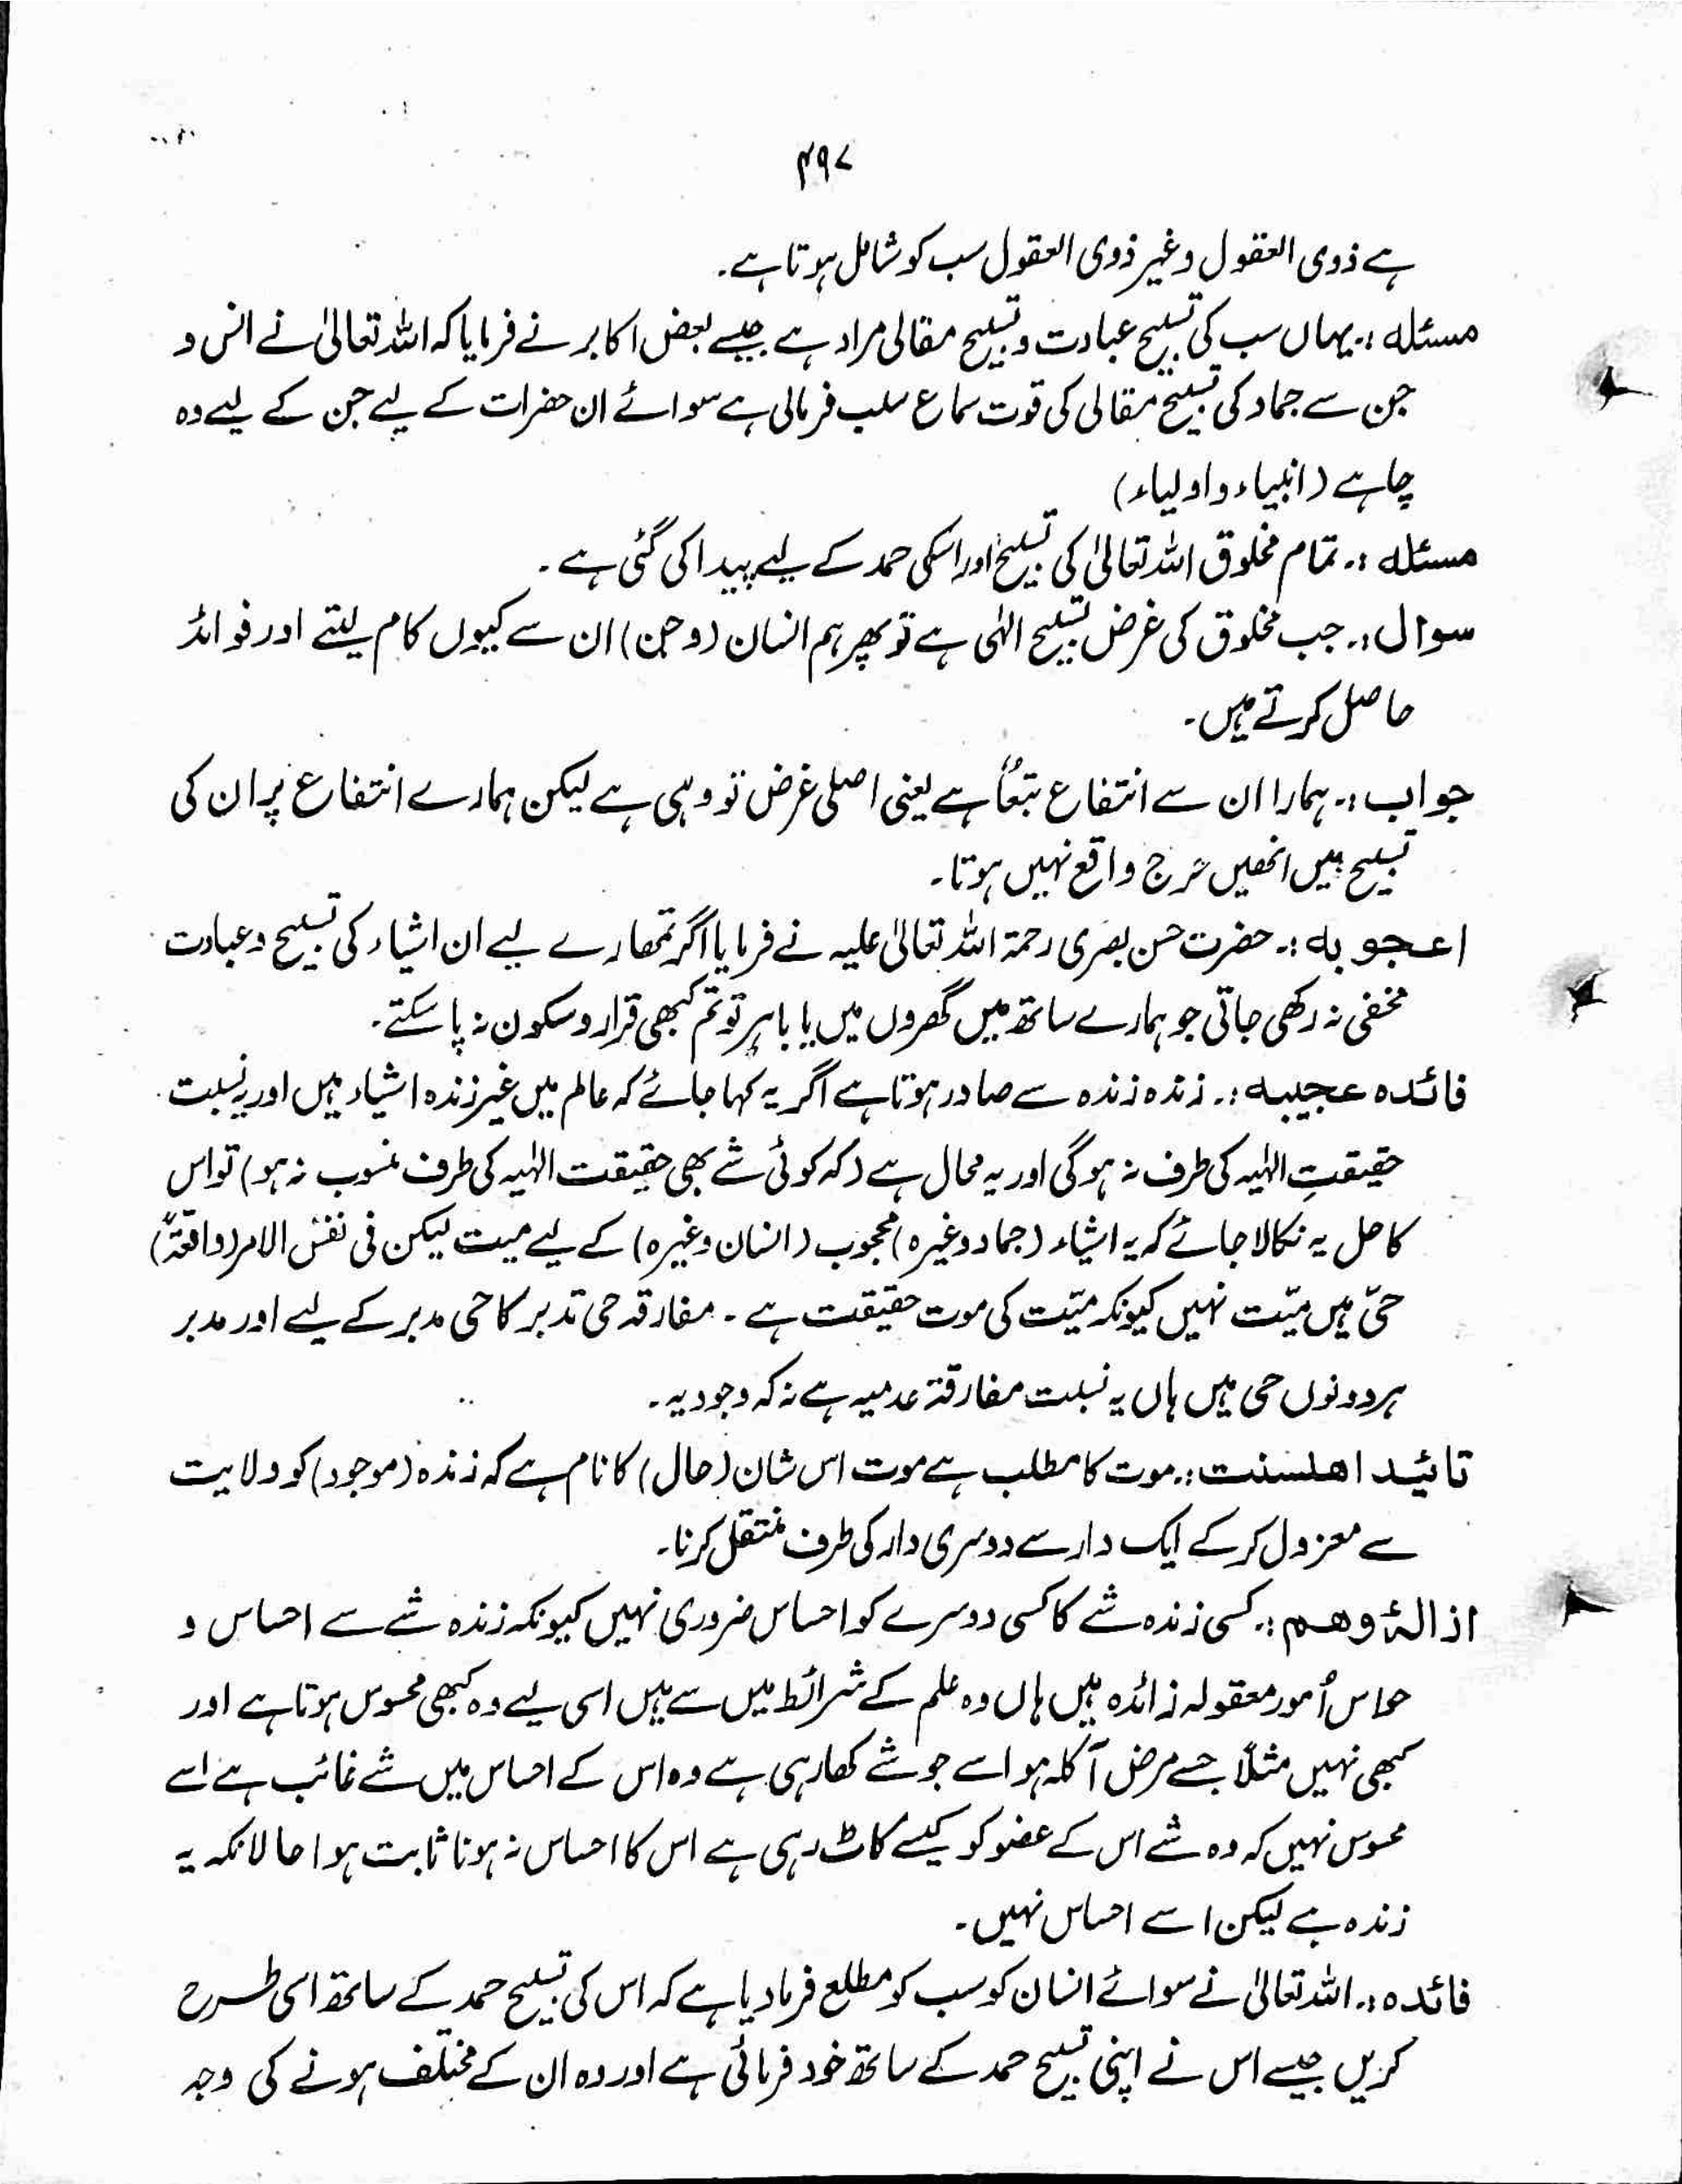 ۴۹۷
ہے ذوی العقول وغیر ذوی العقول سب کو شامل ہوتا ہے۔
مسئلہ :۔ یہاں سب کی تسبیح عبادت و تسبیح مقالی مراد ہے جیسے بعض اکابر نے فرمایا کہ اللہ تعالیٰ نے انس و
جن سے جماد کی تسبیح مقالی کی قوت سماع سلب فرمالی ہے سوائے ان حضرات کے لیے جن کے لیے وہ
چاہے (انبیاء و اولیاء)
مسئلہ :۔ تمام مخلوق اللہ تعالیٰ کی تسبیح اور اسکی حمد کے لیے پیدا کی گئی ہے ۔
سوال :۔ جب مخلوق کی غرض تسبیح الٰہی ہے تو پھر ہم انسان (و جن) ان سے کیوں کام لیتے اور فوائد
حاصل کرتے ہیں۔
جواب :۔ ہمارا ان سے انتفاع تبعاً ہے یعنی اصلی غرض تو وہی ہے لیکن ہمارے انتفاع پر ان کی
تسبیح میں انھیں حرج واقع نہیں ہوتا۔
اعجوبہ :۔ حضرت حسن بصری رحمۃ اللہ تعالیٰ علیہ نے فرمایا اگر تمھارے لیے ان اشیاء کی تسبیح و عبادت
مخفی نہ رکھی جاتی جو ہمارے ساتھ ہیں گھروں میں یا باہر تو تم کبھی قرار و سکون نہ پا سکتے۔
فائدہ عجیبہ :۔ زندہ زندہ سے صادر ہوتا ہے اگر یہ کہا جائے کہ عالم میں غیر زندہ اشیاء ہیں اور یہ نسبت
حقیقتِ الٰہیہ کی طرف نہ ہوگی اور یہ محال ہے (کہ کوئی شے بھی حقیقت الٰہیہ کی طرف منسوب نہ ہو) تو اس
کا حل یہ نکالا جائے کہ یہ اشیاء (جماد وغیرہ) محجوب (انسان وغیرہ) کے لیے میت لیکن فی نفس الامر (واقعۃً)
حیّ ہیں میّت نہیں کیونکہ میّت کی موت حقیقت ہے ۔ مفارقہ حی تدبر کا حی مدبر کے لیے اور مدبر
ہر دونوں حی ہیں ہاں یہ نسبت مفارقۃ عدمیہ ہے نہ کہ وجودیہ۔
تائید اھلسنت :۔ موت کا مطلب ہے موت اس شان (حال) کا نام ہے کہ زندہ (موجود) کو ولایت
سے معزول کرکے ایک دار سے دوسری دار کی طرف منتقل کرنا۔
ازالۂ وھم :۔ کسی زندہ شے کا کسی دوسرے کو احساس ضروری نہیں کیونکہ زندہ شے سے احساس و
حواس اُمور معقولہ زائدہ ہیں ہاں وہ علم کے شرائط میں سے ہیں اسی لیے وہ کبھی محسوس ہوتا ہے اور
کبھی نہیں مثلاً جسے مرض آکلہ ہو اسے جو شے کھا رہی ہے وہ اس کے احساس میں شے غائب ہے اسے
محسوس نہیں کہ وہ شے اس کے عضو کو کیسے کاٹ رہی ہے اس کا احساس نہ ہونا ثابت ہوا حالانکہ یہ
زندہ ہے لیکن اسے احساس نہیں۔
فائدہ :۔ اللہ تعالیٰ نے سوائے انسان کو سب کو مطلع فرمادیا ہے کہ اس کی تسبیح حمد کے ساتھ اسی طرح
کریں جیسے اس نے اپنی تسبیح حمد کے ساتھ خود فرمائی ہے اور وہ ان کے مختلف ہونے کی وجہ